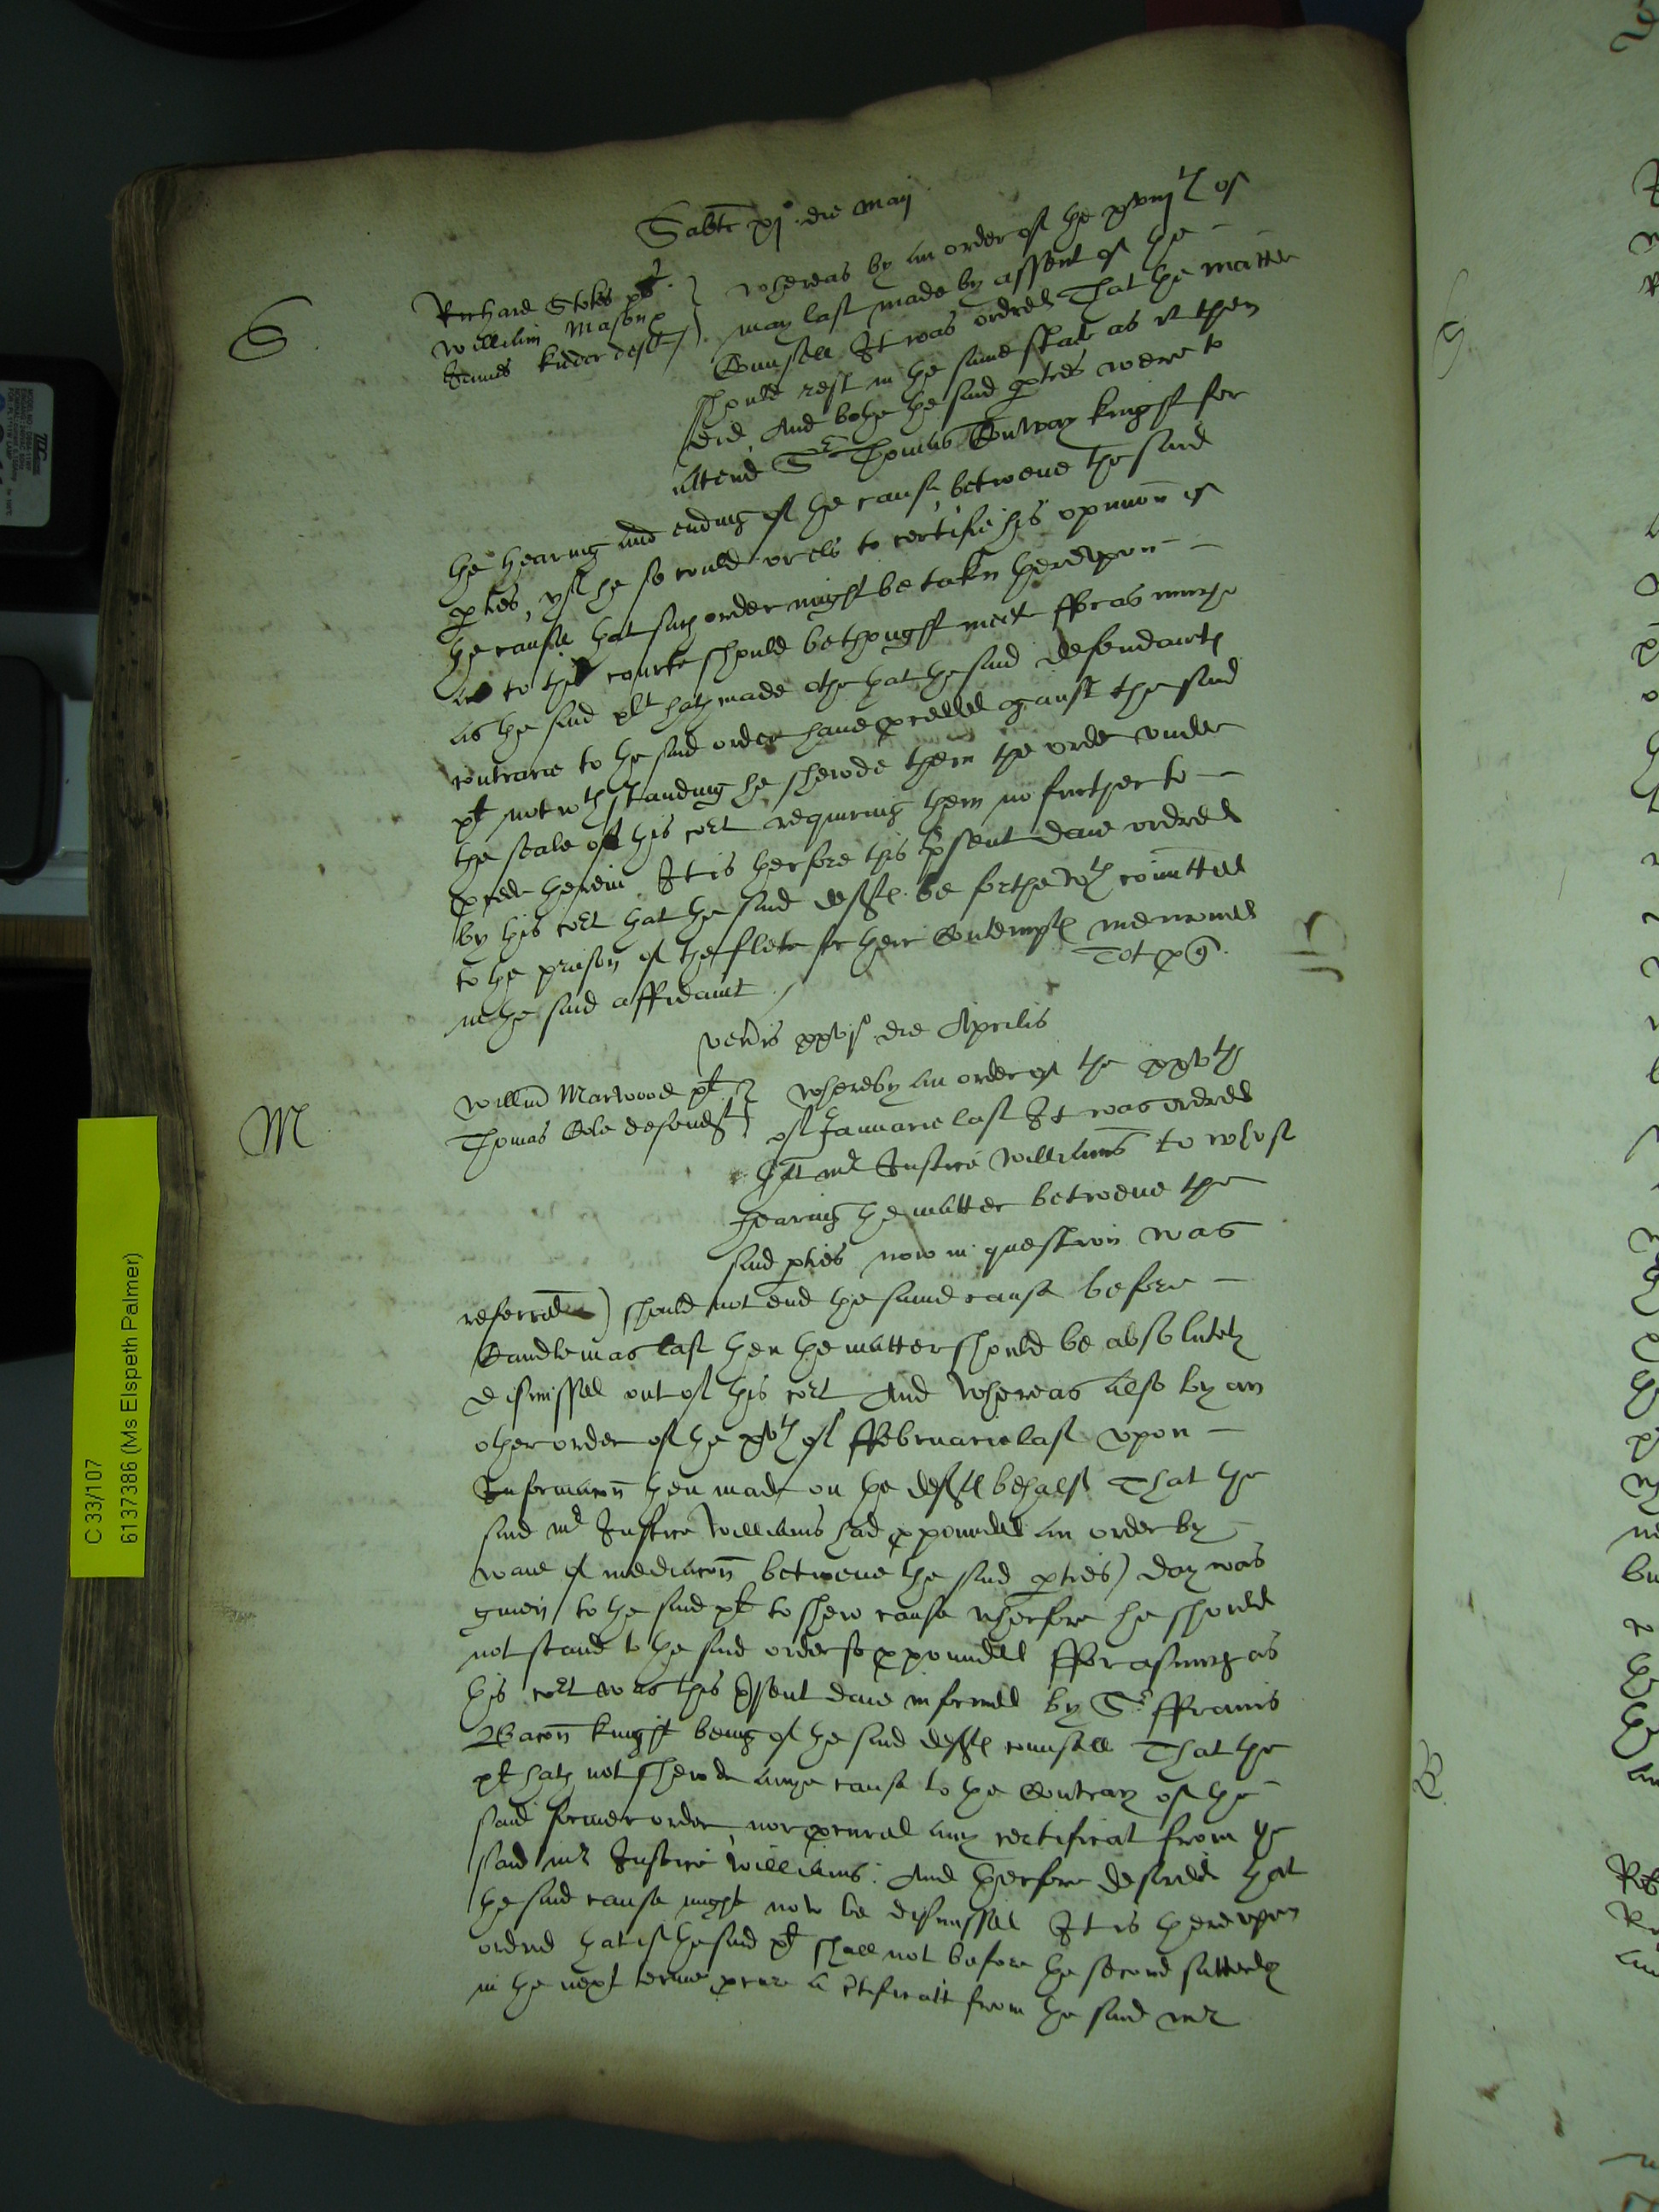 Sabti xj° die Maij
S
Richard Stokes plt
William Mason
James Kidder deftes
whereas by an order of the xviijth of
may last made by assent of the
Counsell It was ordred That the matter
should rest in the same state as it then
did And bothe the said pties were to
attend Sr Thomas Conway knight for
the hearing and ending of the cause betwene the said
pties, yf he so could or els to certifie his opinion of
the cause that such order might be taken therevpon
as to this courte should be thought meet fforasmuche
as the said plt hath made othe that the said defendauntes
contrarie to the said order have pceeded against the said
plt notwthstanding he shewde them the order vnder
the seale of this cort requiring them no further to
pceede therein It is therfore this psent daie ordred
by this cort that the said deftes be forthewth comitted
to the prison of the flete for their Contemptes mencioned
in the said affidavit
JB
Veneris xxvj° die Aprilis
M
Willm Marwood plt
Thomas Cole defendt
whereby an order of the xxvth
of Januarie last It was ordred
that mr Justice Williams to whose
hearing the matter betwene the
said pties now in question was
referred) should not end the said cause before
Candlemas last then the matter should be absolutely
dismissed out of this cort And whereas also by an
other order of the xvth of ffebruarie last vpon
Informacon then made on the deftes behalf That the
said mr Justice Williams had ppounded an order by
waie of mediacon betwene the said pties) day was
given to the said plt to shew cause wherfore he should
not stand to the said order so ppounded fforasmuch as
this cort was this psent daie informed by Sr ffrancis
Bacon knight being of the said deftes counsell That the
plt hath not shewde anye cause to the Contrary of the
said former order, nor pcured any certificat from the
said mr Justice Williams: And therfore desired that
the said cause might now be dismissed It is therevpon
ordred that if the said plt shall not before the second
in the next terme pcure a ctificatt from the said mr
C 33/107
6137386 (Ms Elspeth Palmer)